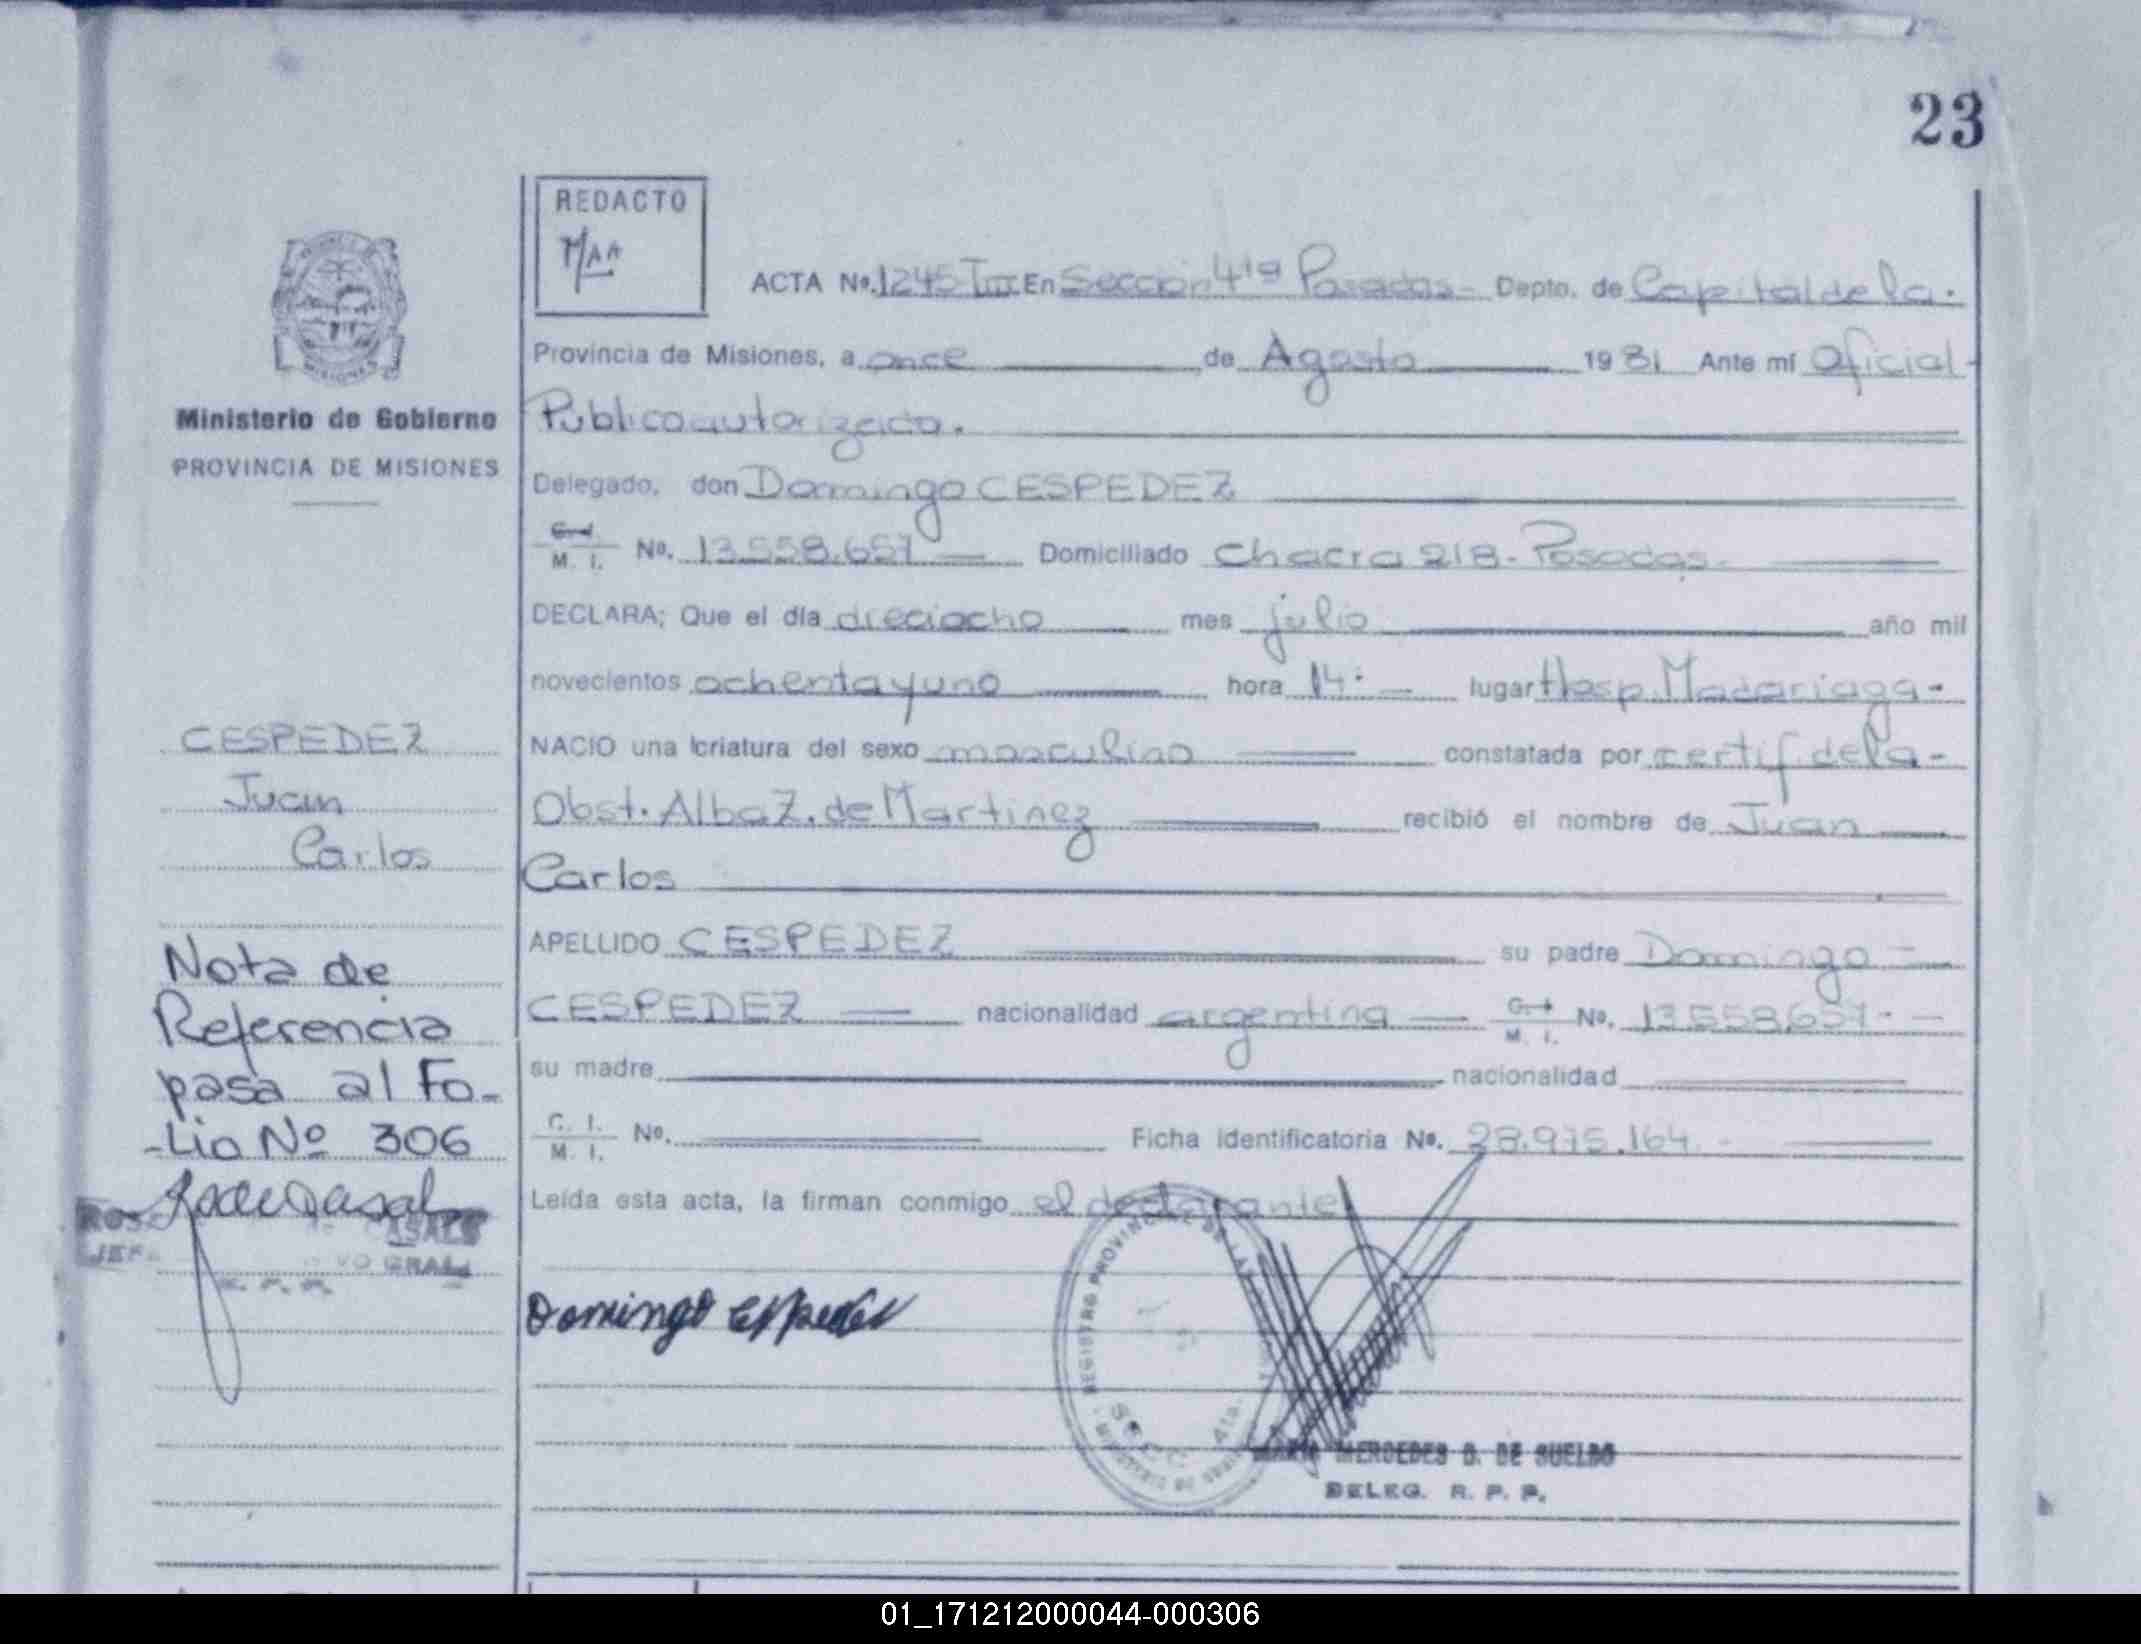 23
REDACTO
MAA
ACTA Nº. 1245 T III En Sección 4ta Posadas- Depto. de Capital de la.
Provincia de Misiones, a once de Agosto 1981 Ante mí Oficial-
Publico autorizado.
Ministerio de Gobierno
PROVINCIA DE MISIONES
Delegado, don Domingo CESPEDEZ
C. I. M. I. Nº. 13.558.657 Domiciliado Chacra 218- Posadas-
DECLARA; Que el día dieciocho mes julio año mil
novecientos ochenta y uno hora 14: lugar Hosp. Madariaga-
CESPEDEZ
Juan
Carlos
NACIO una criatura del sexo masculino constatada por certif. de la-
Obst. Alba Z. de Martinez recibió el nombre de Juan
Carlos
APELLIDO CESPEDEZ su padre Domingo-
CESPEDEZ nacionalidad argentina C. I. M. I. Nº. 13.558.657.-
su madre nacionalidad
C. I. M. I. Nº. Ficha identificatoria Nº. 28.975.164.-
Leída esta acta, la firman conmigo el declarante
Nota de
Referencia
pasa al Fo-
-Lio Nº 306
JEF
VO GRAL
Domingo Cespedez
REGISTRO PROVINCIAL DE LAS
SECC. 4ta.
MARIA MERCEDES D. DE SUELDO
DELEG. R. P. P.
01_171212000044-000306